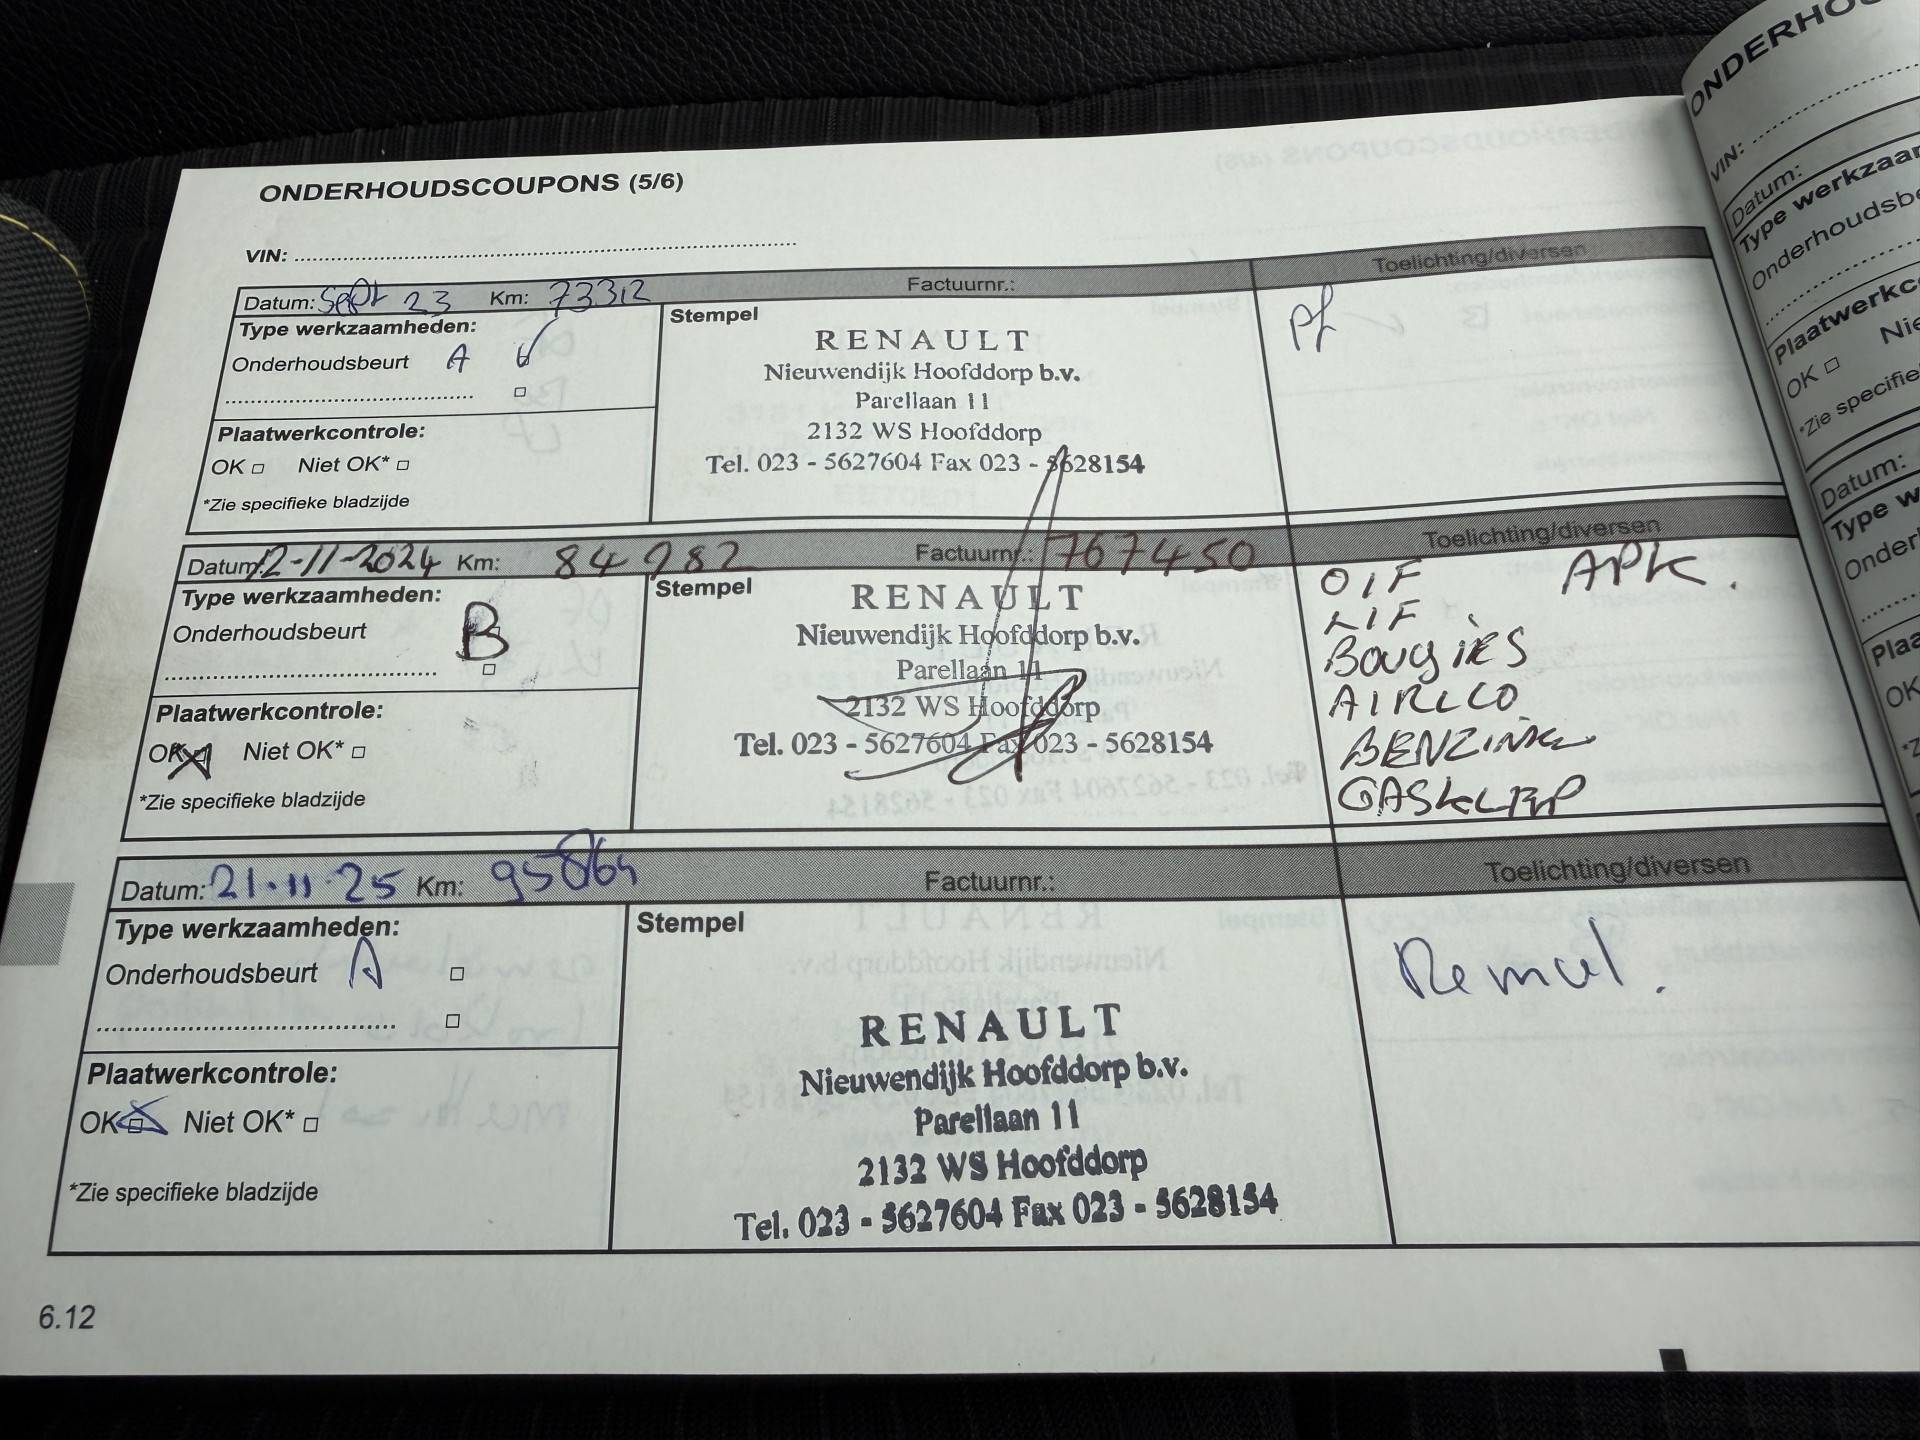 ONDERHOUDSCOUPONS (5/6)
VIN:
Datum: Sept 23 Km: 73312 Factuurnr.: Toelichting/diversen
Type werkzaamheden:
Onderhoudsbeurt A
Plaatwerkcontrole:
OK Niet OK*
*Zie specifieke bladzijde
Stempel
RENAULT
Nieuwendijk Hoofddorp b.v.
Parellaan 11
2132 WS Hoofddorp
Tel. 023 - 5627604 Fax 023 - 5628154
Datum: 12-11-2024 Km: 84982 Factuurnr.: 767450 Toelichting/diversen
Type werkzaamheden:
Onderhoudsbeurt B
Plaatwerkcontrole:
OK Niet OK*
*Zie specifieke bladzijde
Stempel
RENAULT
Nieuwendijk Hoofddorp b.v.
Parellaan 11
2132 WS Hoofddorp
Tel. 023 - 5627604 Fax 023 - 5628154
OIF APK.
LIF
BOUGIES
AIRCO
GASKLEP
Datum: 21-11-25 Km: 95864 Factuurnr.: Toelichting/diversen
Type werkzaamheden:
Onderhoudsbeurt A
Plaatwerkcontrole:
OK Niet OK*
*Zie specifieke bladzijde
Stempel
RENAULT
Nieuwendijk Hoofddorp b.v.
Parellaan 11
2132 WS Hoofddorp
Tel. 023 - 5627604 Fax 023 - 5628154
6.12
VIN:
Datum:
Type werkzaam
Onderhoudsbe
Plaatwerkco
OK Nie
*Zie specifie
Datum:
Type w
Onder
Plaa
OK